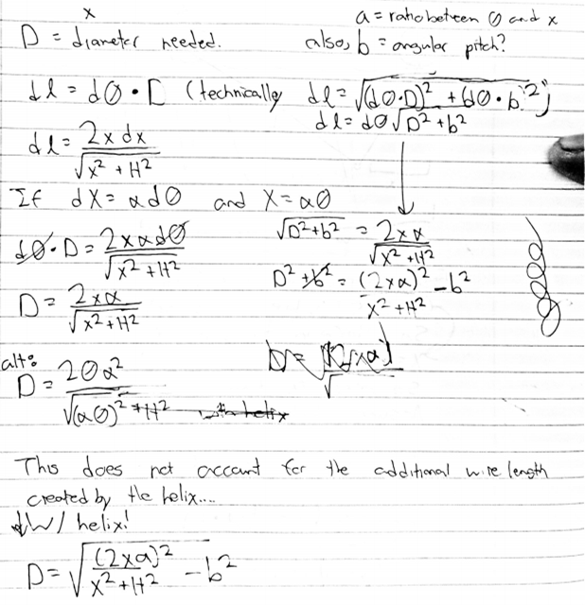 x
D = diameter needed.
a = ratio between θ and x
also, b = angular pitch?
dl = dθ • D (technically dl = √((dθ•D)² + (dθ•b)²))
dl = dθ√(D²+b²)
dl = 2x dx / √(x² + H²)
If dX = αdθ and X = αθ
√(D²+b²) = 2xα / √(x²+H²)
dθ•D = 2xαdθ / √(x²+H²)
D²+b² = (2xα)² / (x²+H²) - b²
D = 2xα / √(x²+H²)
alt:
D = 2θα² / √((αθ)²+H²)
This does not account for the additional wire length
created by the helix....
W/ helix!
D = √((2xα)² / (x²+H²) - b²)